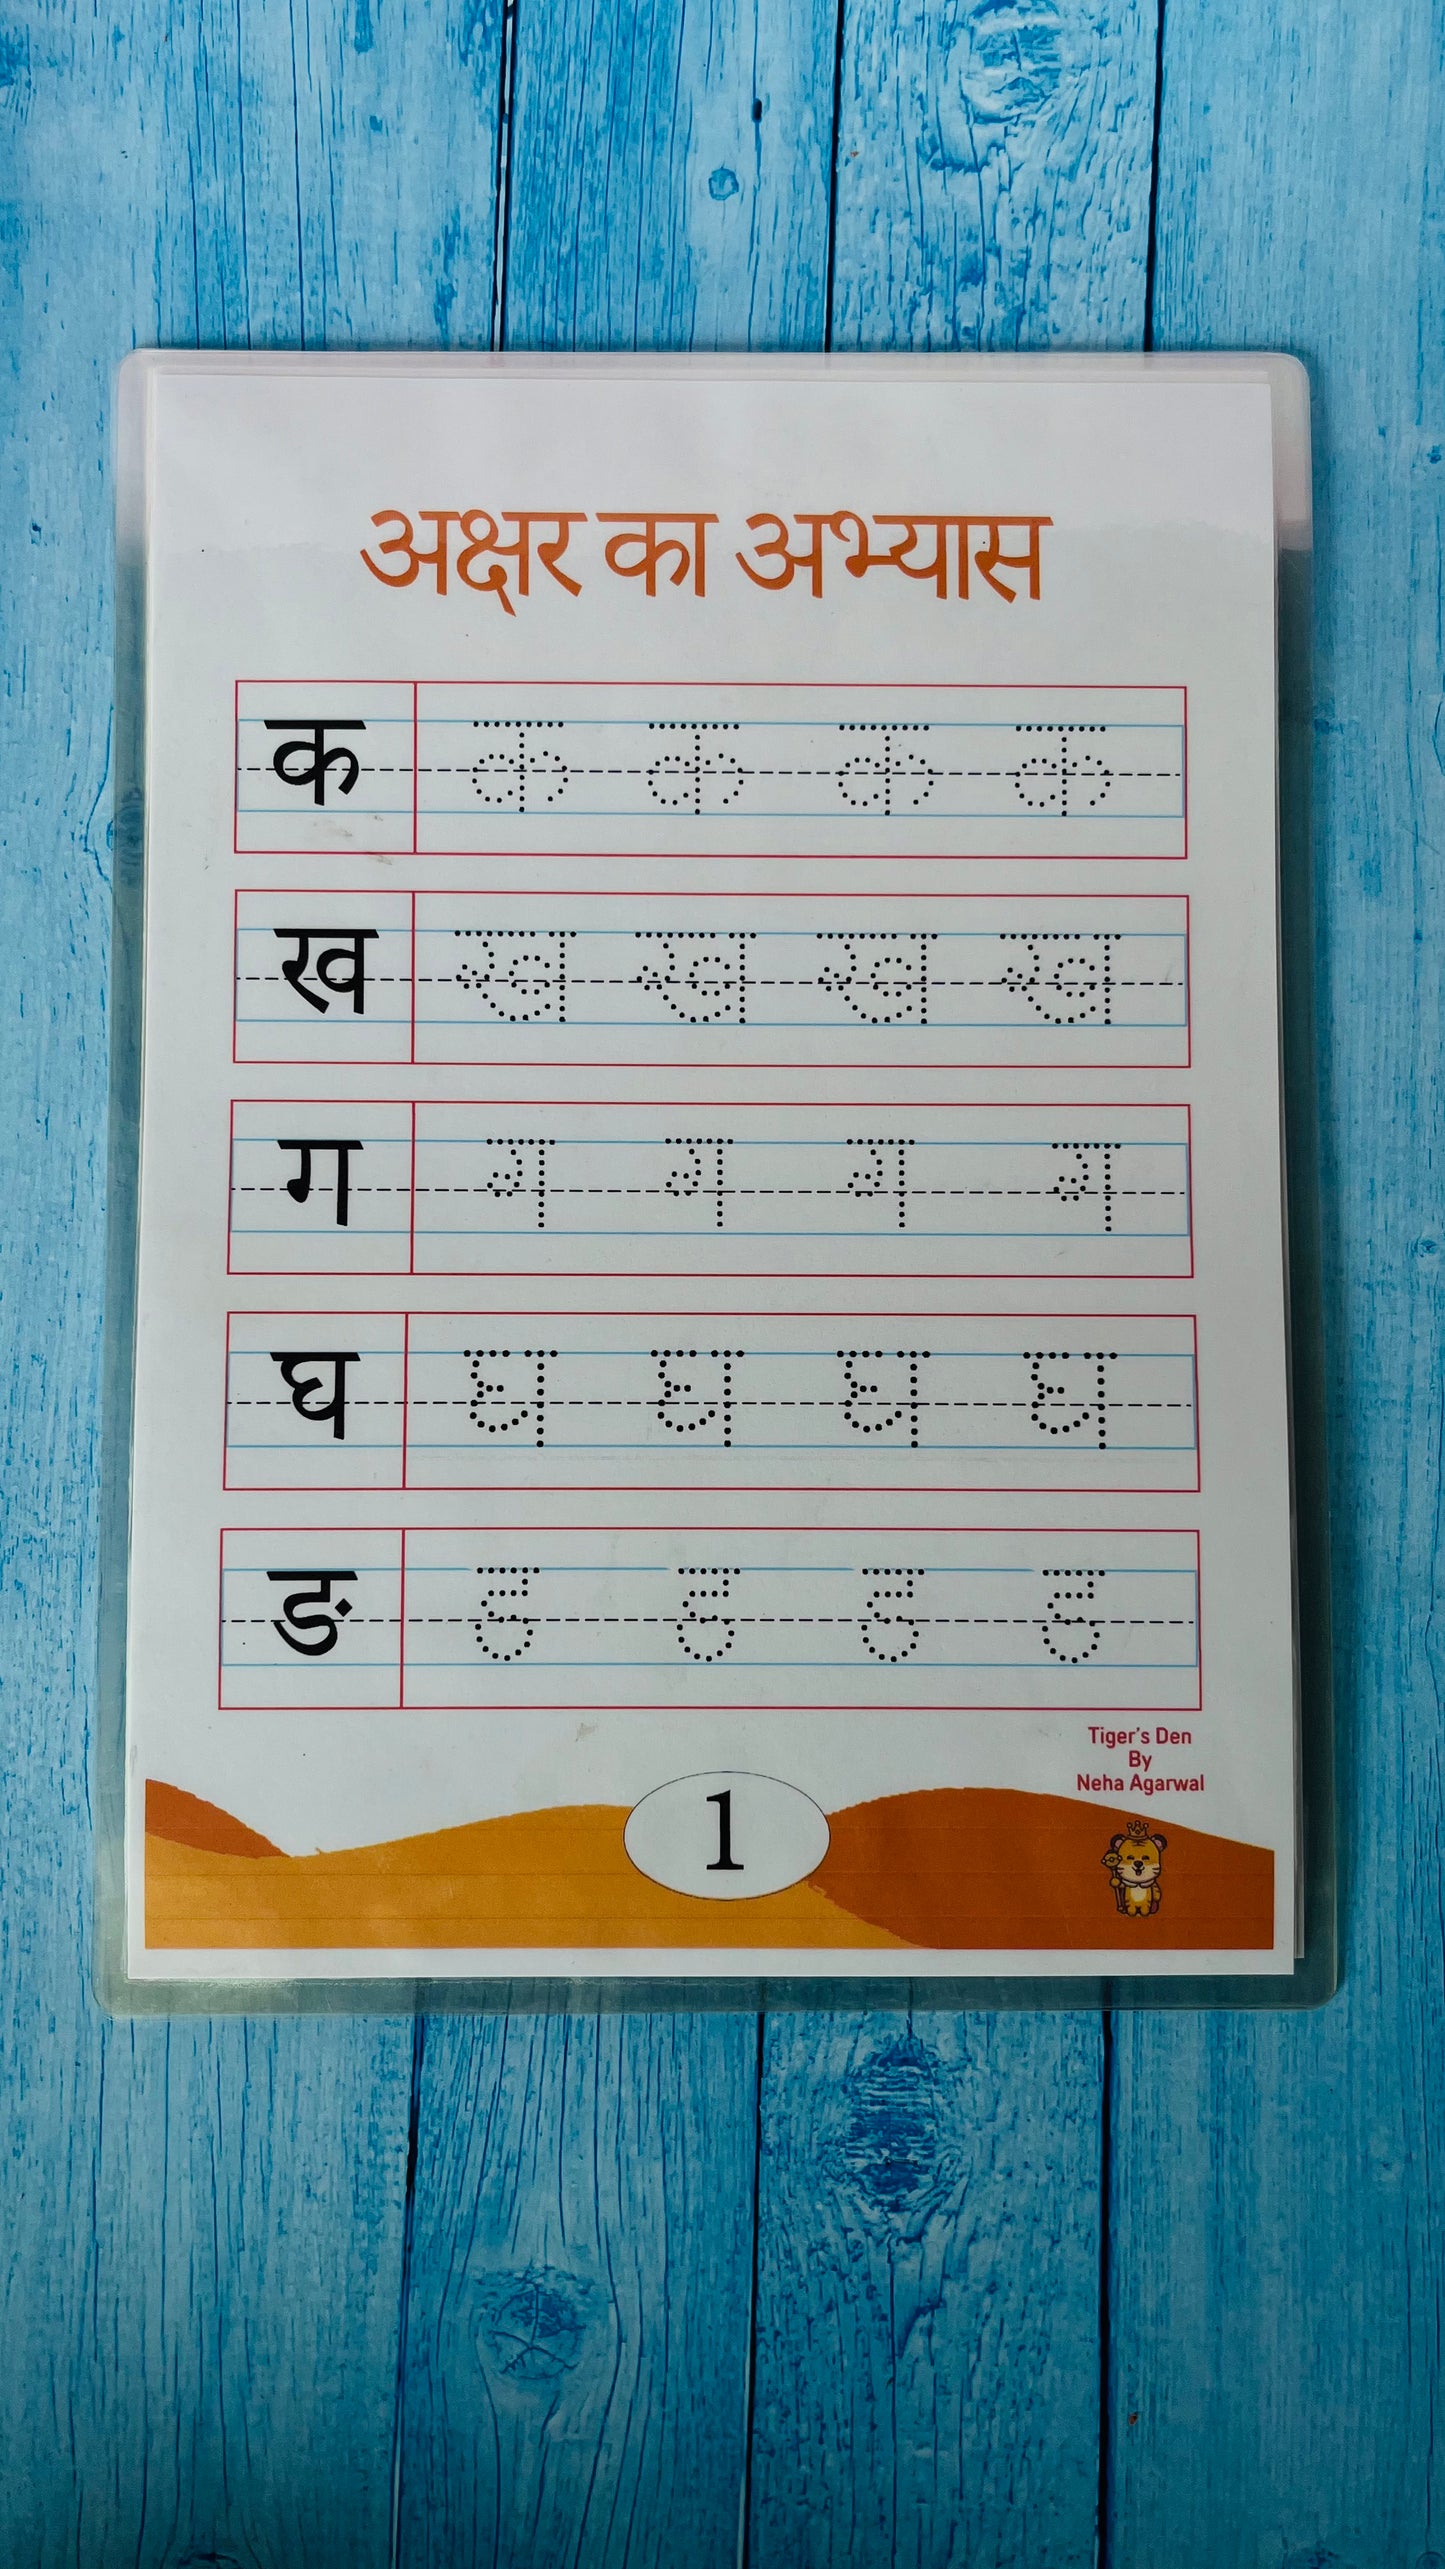 अक्षर का अभ्यास
क क क क क
ख ख ख ख ख
ग ग ग ग ग
घ घ घ घ घ
ङ ङ ङ ङ ङ
Tiger's Den
By
Neha Agarwal
1